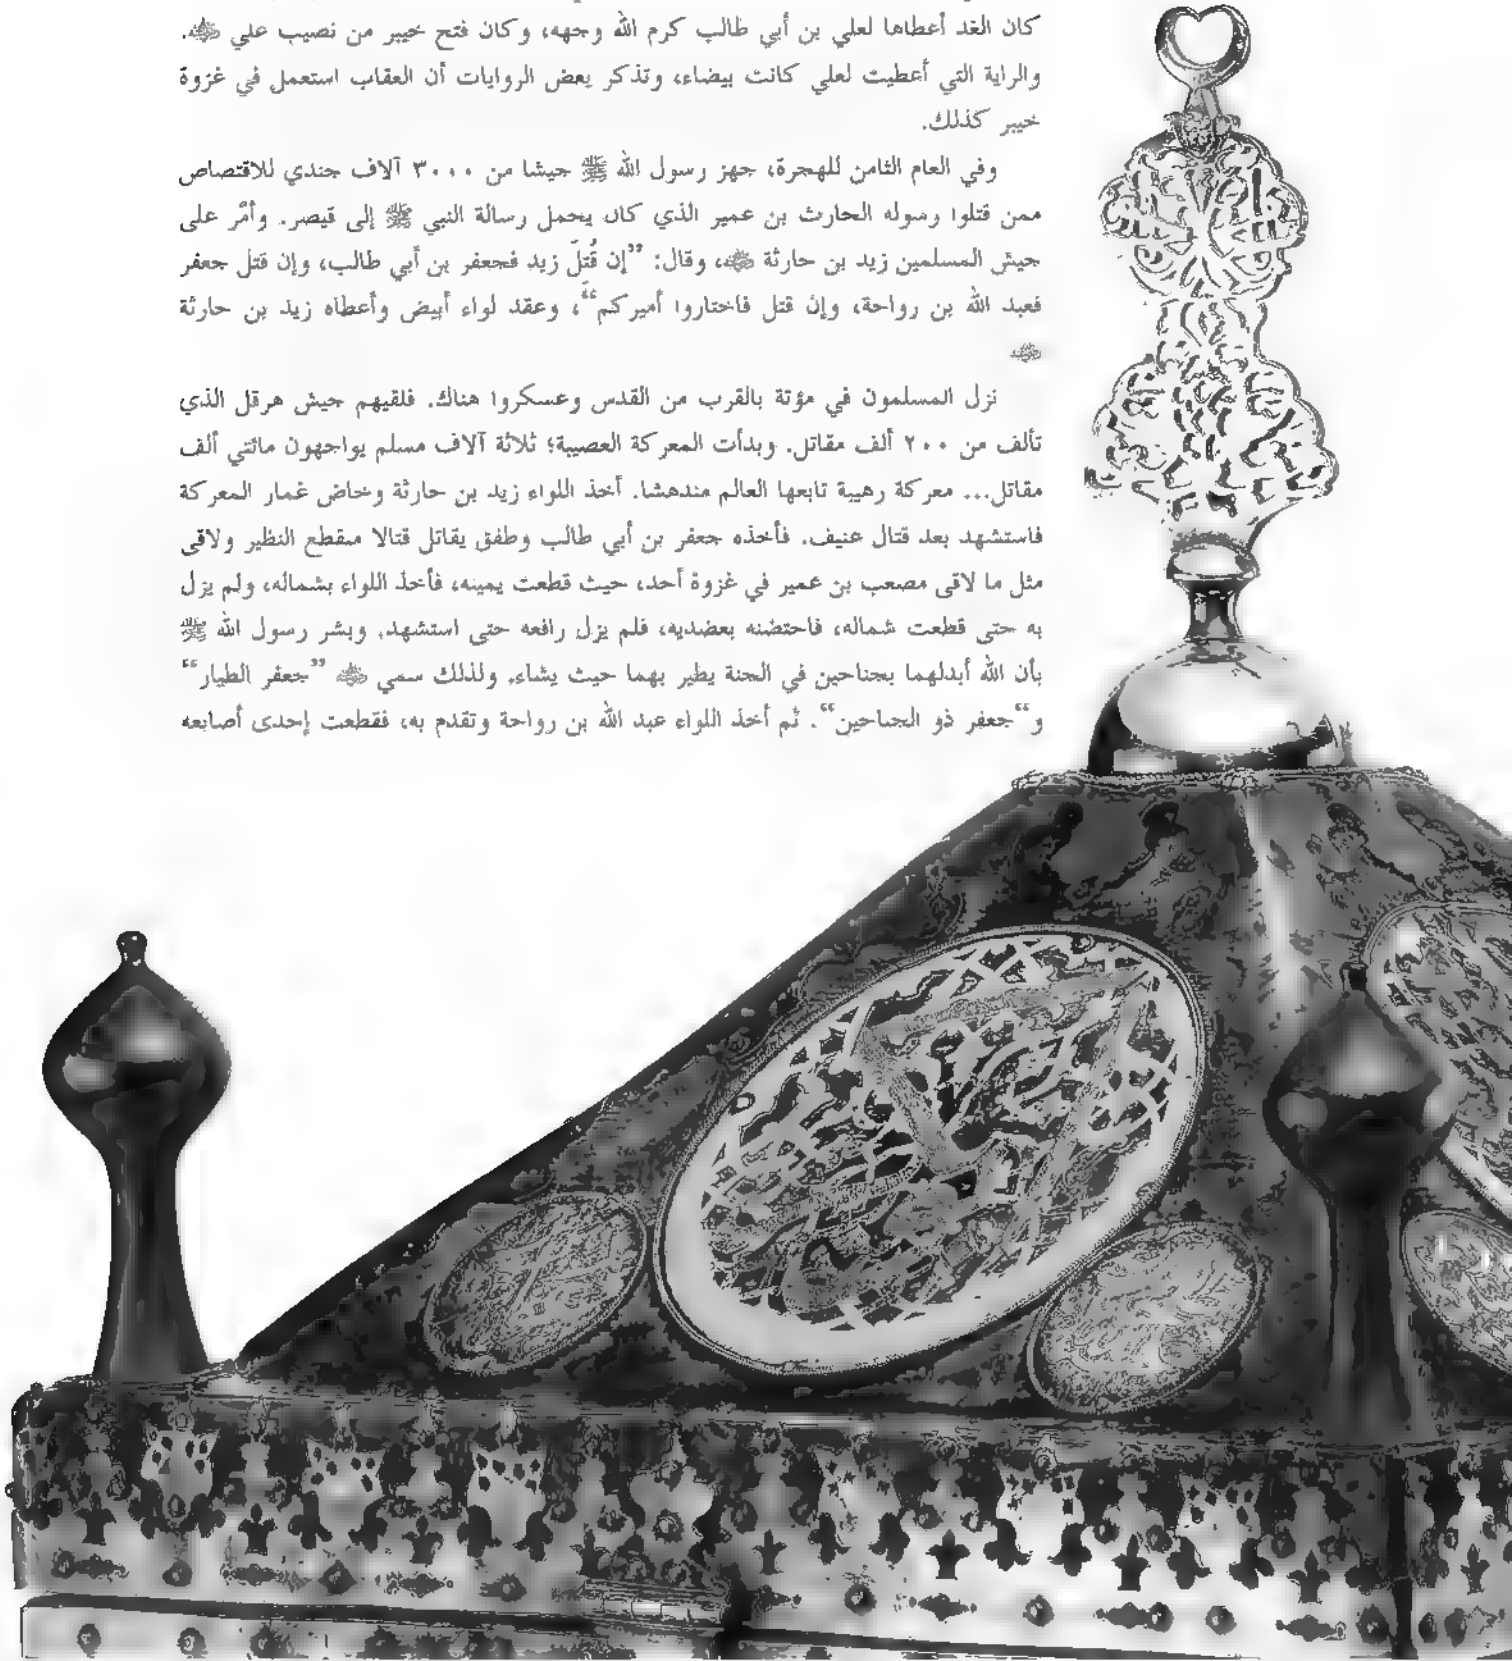 كان الغد أعطاها لعلي بن أبي طالب كرم الله وجهه، وكان فتح خيبر من نصيب علي ﷺ.
والراية التي أعطيت لعلي كانت بيضاء، وتذكر بعض الروايات أن العقاب استعمل في غزوة
خيبر كذلك.
وفي العام الثامن للهجرة، جهز رسول الله ﷺ جيشا من ٣٠٠٠ آلاف جندي للاقتصاص
ممن قتلوا رسوله الحارث بن عمير الذي كان يحمل رسالة النبي ﷺ إلى قيصر. وأمّر على
جيش المسلمين زيد بن حارثة، وقال: ”إن قُتلَ زيد فجعفر بن أبي طالب، وإن قتل جعفر
فعبد الله بن رواحة، وإن قتل فاختاروا أميركم“، وعقد لواء أبيض وأعطاه زيد بن حارثة
نزل المسلمون في مؤتة بالقرب من القدس وعسكروا هناك. فلقيهم جيش هرقل الذي
تألف من ٢٠٠ ألف مقاتل. وبدأت المعركة العصيبة؛ ثلاثة آلاف مسلم يواجهون مائتي ألف
مقاتل... معركة رهيبة تابعها العالم مندهشا. أخذ اللواء زيد بن حارثة وخاض غمار المعركة
فاستشهد بعد قتال عنيف. فأخذه جعفر بن أبي طالب وطفق يقاتل قتالا منقطع النظير ولاقى
مثل ما لاقى مصعب بن عمير في غزوة أحد، حيث قطعت يمينه، فأخذ اللواء بشماله، ولم يزل
به حتى قطعت شماله، فاحتضنه بعضديه، فلم يزل رافعه حتى استشهد. وبشر رسول الله ﷺ
بأن الله أبدلهما بجناحين في الجنة يطير بهما حيث يشاء. ولذلك سمي ”جعفر الطيار“
و“جعفر ذو الجناحين“. ثم أخذ اللواء عبد الله بن رواحة وتقدم به، فقطعت إحدى أصابعه